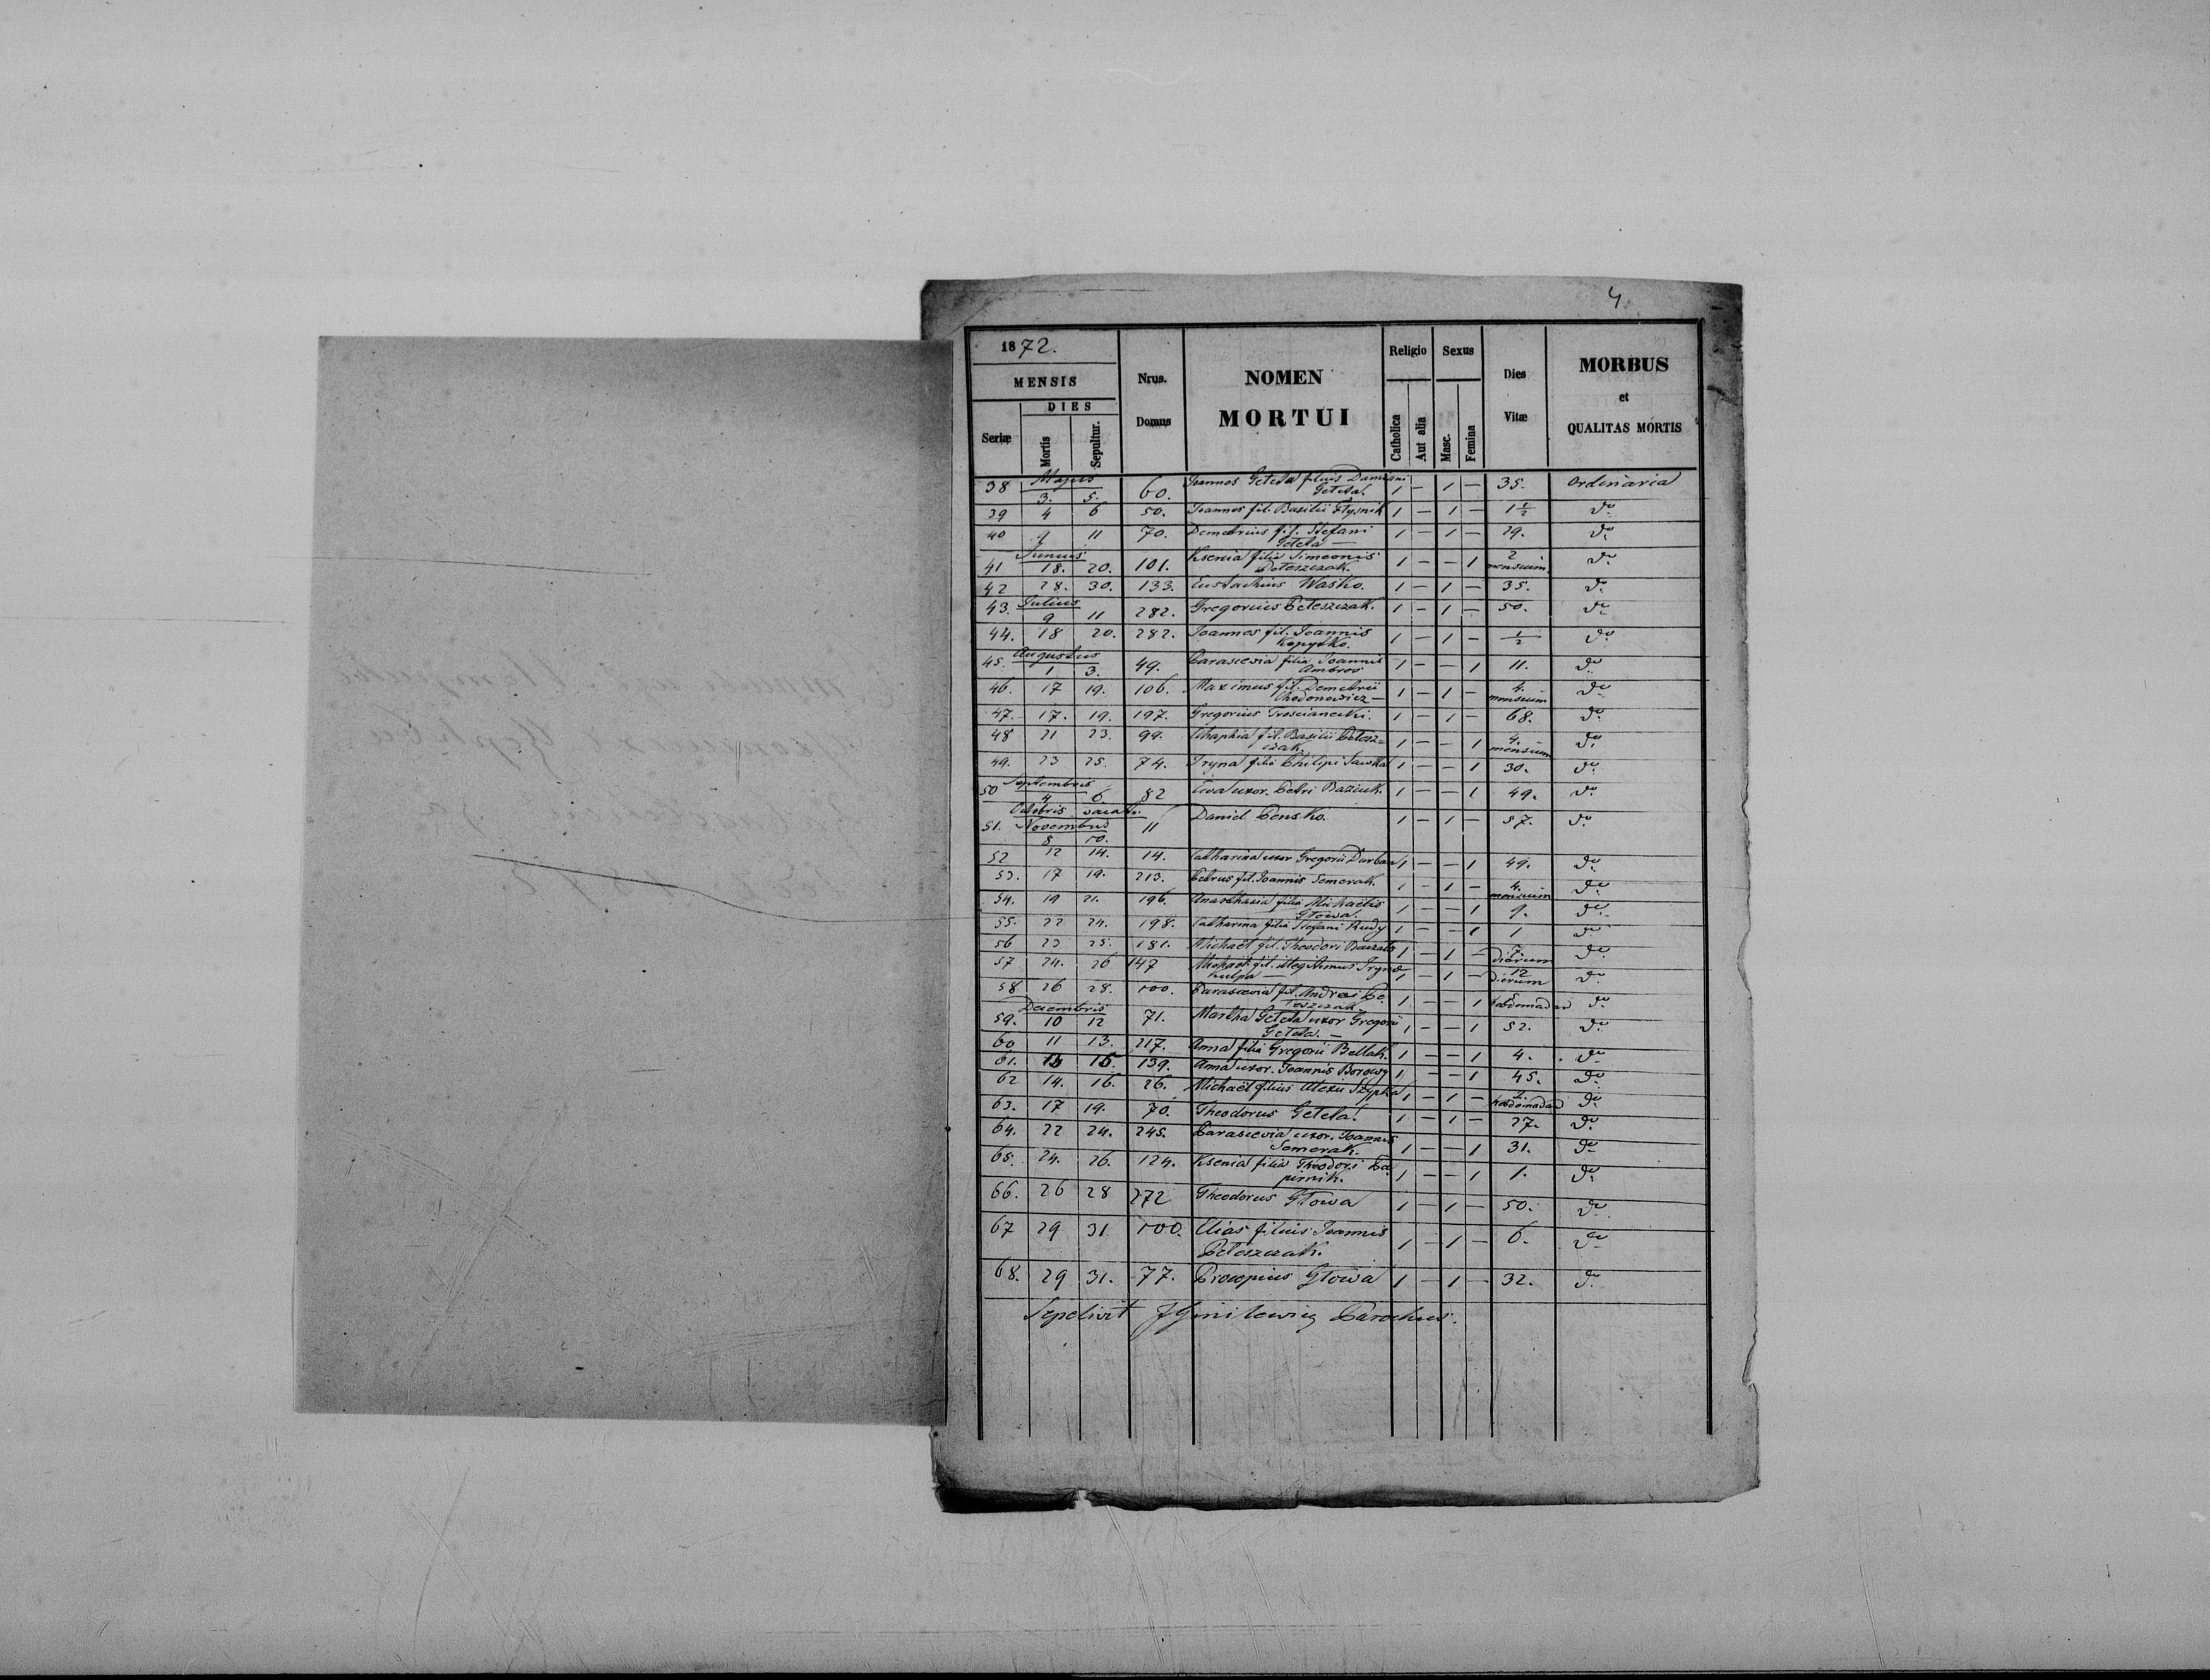 4
1872.
MENSIS
DIES
Seriæ Mortis Sepultur.
Nrus. Domus
NOMEN
MORTUI
Religio
Catholica Aut alia
Sexus
Masc. Femina
Dies Vitæ
MORBUS
et
QUALITAS MORTIS
Majus
38 3. 5. 60. Joannes Getela filius Damiani 1 — 1 — 35. Ordinaria
Getela.
39 4 6 50. Joannes fil. Basilii 1 — 1 — 1½ do
40 9 11 70. Demetrius fil. Stefani 1 — 1 — 29. do
Getela —
Junius
41 18. 20. 101. Ksenia filia Simeonis 1 — — 1 2 mensium do
Peteszczak.
42 28. 30. 133. Eustachius Wasko. 1 — 1 — 35. do
Julius
43. 9 11 282. Gregorius Peteszczak. 1 — 1 — 50. do
44. 18 20. 282. Joannes fil. Joannis 1 — 1 — ½ do
Kopytko.
Augustus
45. 1 3. 49. Parascevia filia Joannis 1 — — 1 11. do
Ambros
46. 17 19. 106. Maximus fil. Demetrii 1 — 1 — 4. mensium do
Chodonowicz —
47. 17. 19. 197. Gregorius Troscianecki. 1 — 1 — 68. do
48 21 23. 99. Ahaphia fil. Basilii Petesz= 1 — — 1 4. mensium do
czak.
49. 23 25. 74. Iryna filia Philipi Sawka 1 — — 1 30. do
Septembris
50 4 6. 82 Eva uxor. Petri Baziuk. 1 — — 1 49. do
Octobris vacat.
Novembris
51. 8 10. 11 Daniel Pensko. 1 — 1 — 57. do
52 12 14. 14. Catharina uxor Gregorii Durban 1 — — 1 49. do
53. 17 19. 213. Petrus fil. Joannis Semerak. 1 — 1 — 4. mensium do
54. 19 21. 196. Anasthasia filia Michaelis 1 — — 1 9. do
Głowa.
55. 22 24. 198. Catharina filia Stefani Rudy 1 — — 1 1 do
56 23 25. 181. Michael fil. Theodori 1 — 1 — 7. dierum do
57 24. 26 147 Michael fil. illegitimus Irynae 1 — 1 — 12 dierum do
Kulpa —
58. 26 28. 100. Parascevia fil. Andrei Pe= 1 — — 1 hebdomadar do
teszczak.
Decembris
59. 10 12 71. Martha Getela uxor Gregorii 1 — — 1 52. do
Getela. —
60 11 13. 217. Anna filia Gregorii Bellak. 1 — — 1 4. do
61. 139. Anna uxor. Joannis Borowy 1 — — 1 45. do
62 14. 16. 26. Michael filius Alexii Szypka 1 — 1 — hebdomadar do
63. 17 19. 70. Theodorus Getela. 1 — 1 — 27. do
64. 22 24. 245. Parascevia uxor. Joannis 1 — — 1 31. do
Semerak.
65. 24. 26. 124. Ksenia filia Theodori Pa= 1 — — 1 1. do
pirnik.
66. 26 28 272 Theodorus Głowa 1 — 1 — 50. do
67 29 31 100. Elias filius Joannis 1 — 1 — 6. do
Peteszczak.
68. 29 31. 77. Procopius Głowa 1 — 1 — 32. do
Sepelivit Parochus.